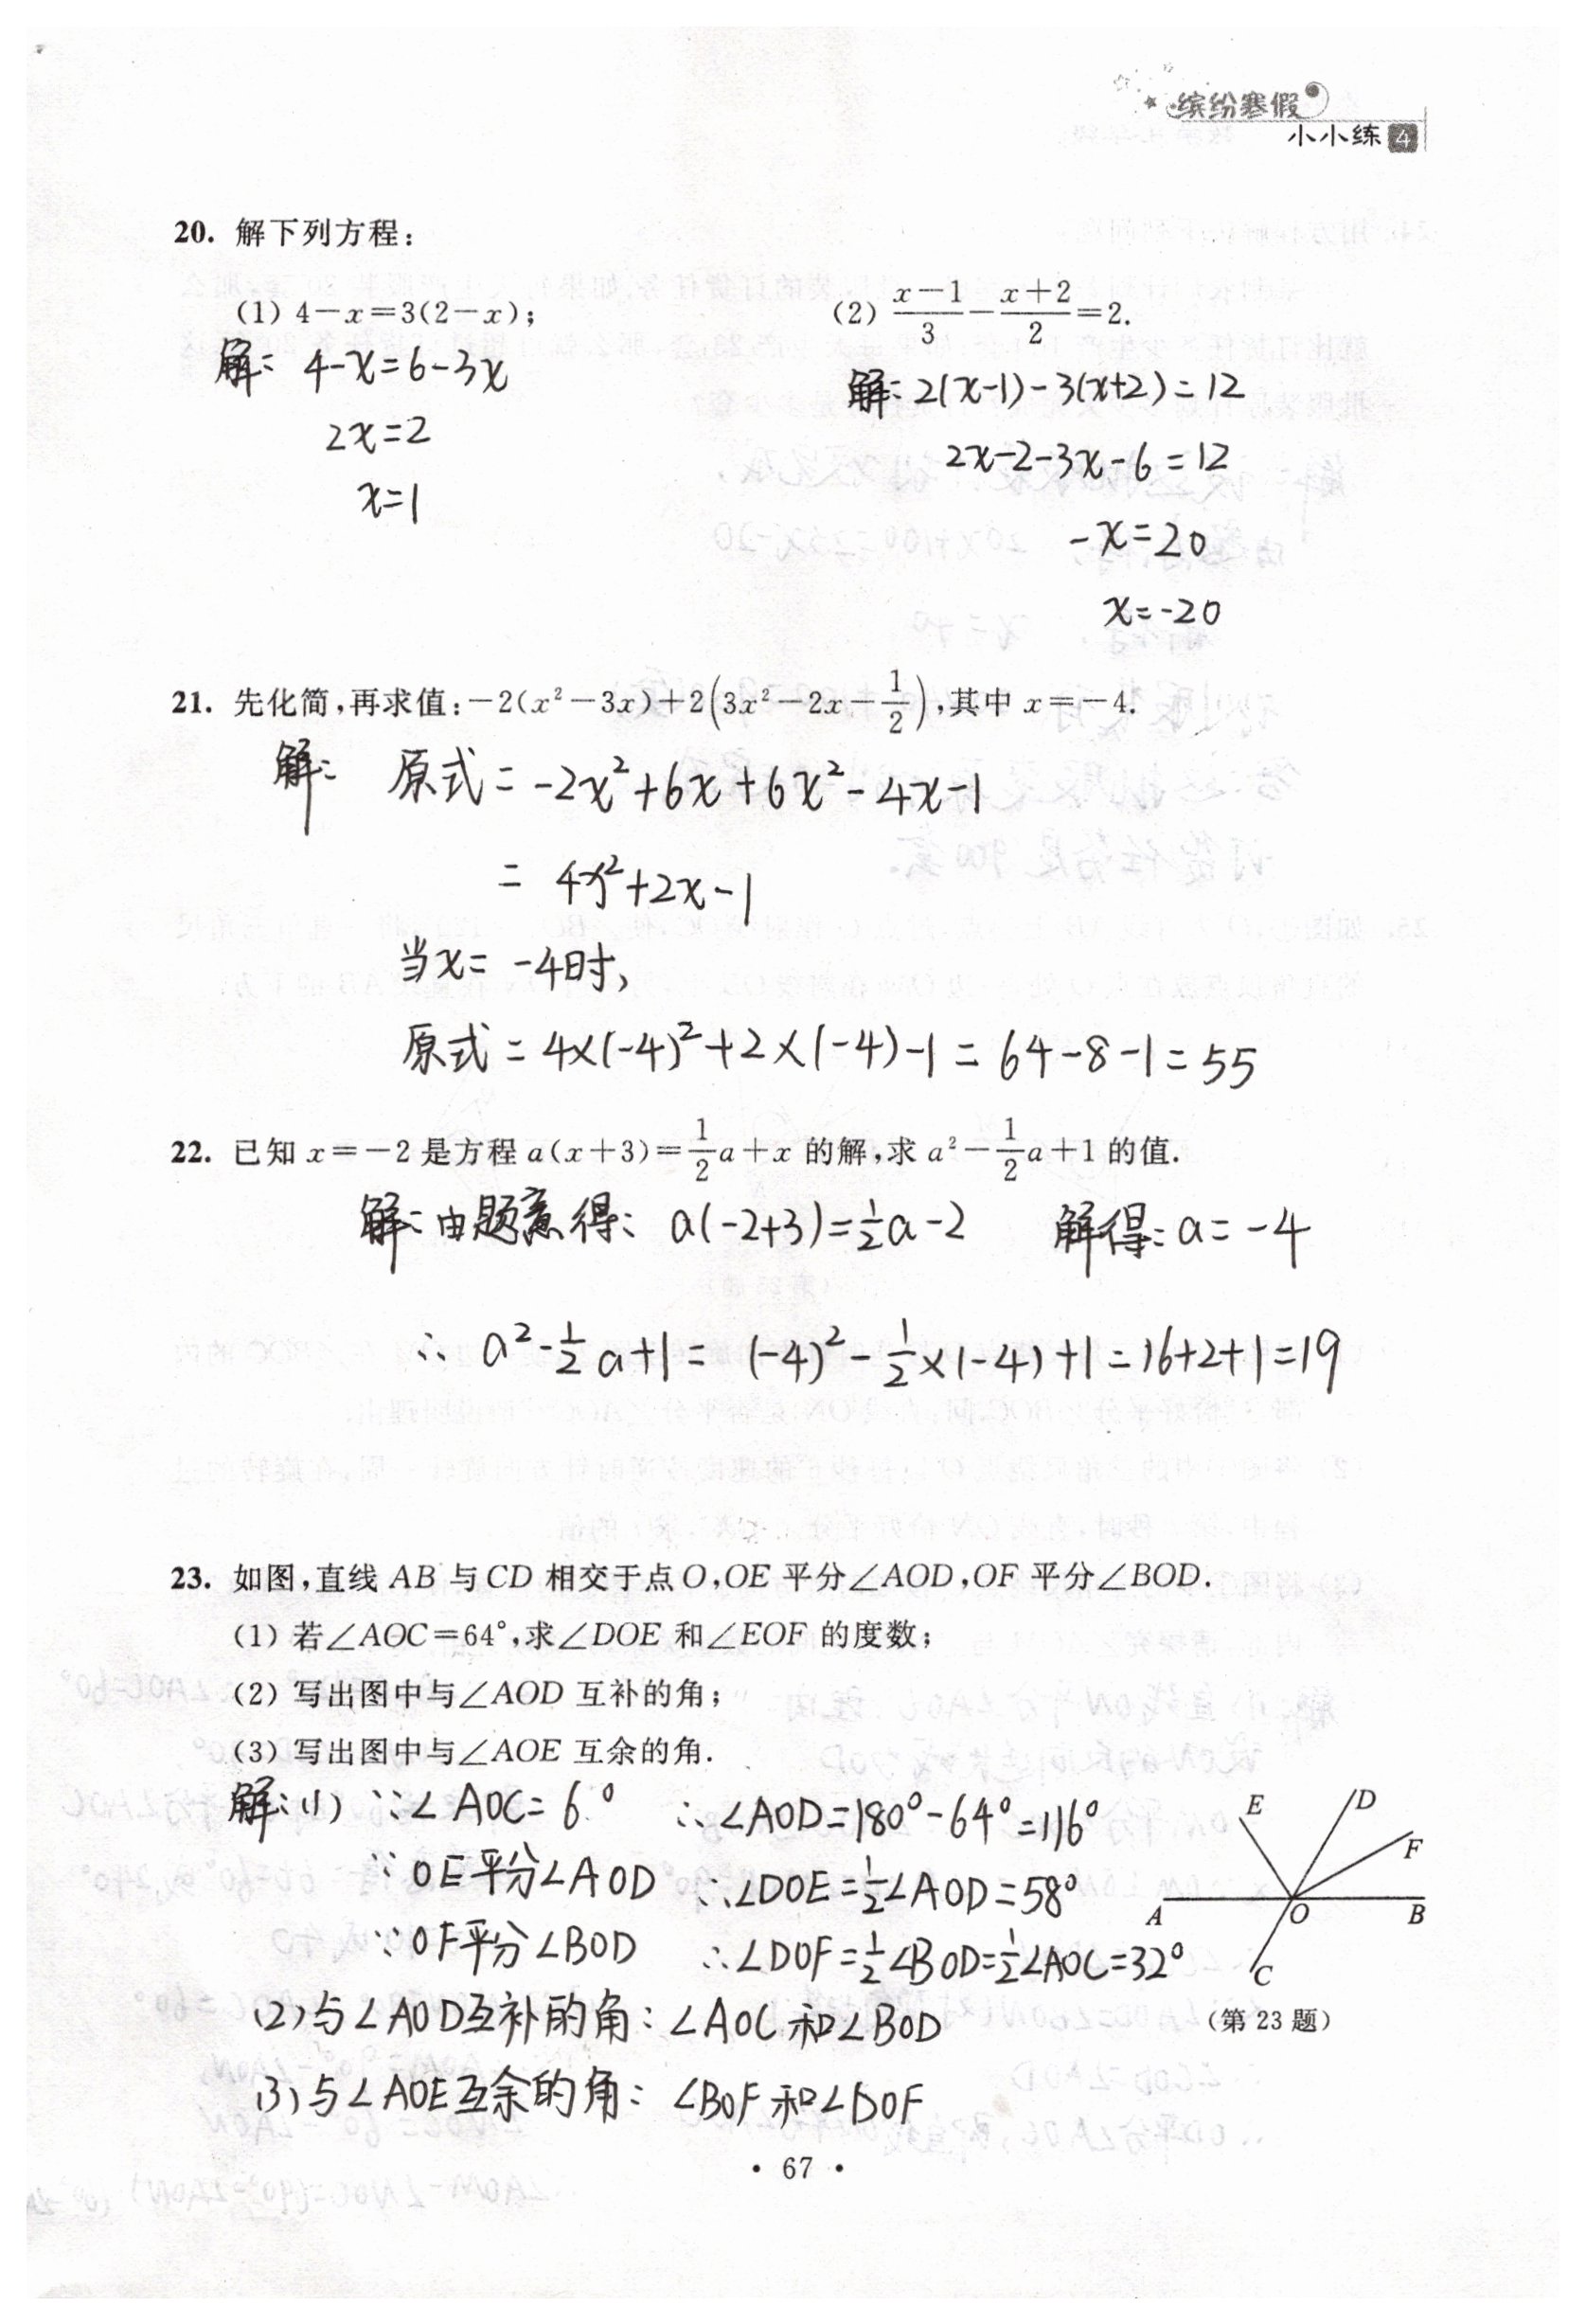 缤纷寒假
小小练 4
20. 解下列方程:
(1) 4-x=3(2-x);
(2) \frac{x-1}{3}-\frac{x+2}{2}=2.
解: 4-x=6-3x
2x=2
x=1
解: 2(x-1)-3(x+2)=12
2x-2-3x-6=12
-x=20
x=-20
21. 先化简,再求值:-2(x²-3x)+2(3x²-2x-\frac{1}{2}),其中 x=-4.
解: 原式=-2x²+6x+6x²-4x-1
= 4x²+2x-1
当x= -4时,
原式=4×(-4)²+2×(-4)-1=64-8-1=55
22. 已知 x=-2 是方程 a(x+3)=\frac{1}{2}a+x 的解,求 a²-\frac{1}{2}a+1 的值.
解:由题意得: a(-2+3)=\frac{1}{2}a-2 解得:a=-4
∴ a²-\frac{1}{2}a+1= (-4)²-\frac{1}{2}×(-4)+1=16+2+1=19
23. 如图,直线 AB 与 CD 相交于点O,OE 平分∠AOD,OF 平分∠BOD.
(1) 若∠AOC=64°,求∠DOE 和∠EOF 的度数;
(2) 写出图中与∠AOD 互补的角;
(3) 写出图中与∠AOE 互余的角.
解:(1) ∵∠AOC=6 ° ∴∠AOD=180°-64°=116°
∵OE平分∠AOD ∴∠DOE=\frac{1}{2}∠AOD=58°
∵OF平分∠BOD ∴∠DOF=\frac{1}{2}∠BOD=\frac{1}{2}∠AOC=32°
(2)与∠AOD互补的角:∠AOC和∠BOD
(3)与∠AOE互余的角: ∠BOF和∠DOF
E
D
F
A
O
B
C
(第 23 题)
• 67 •